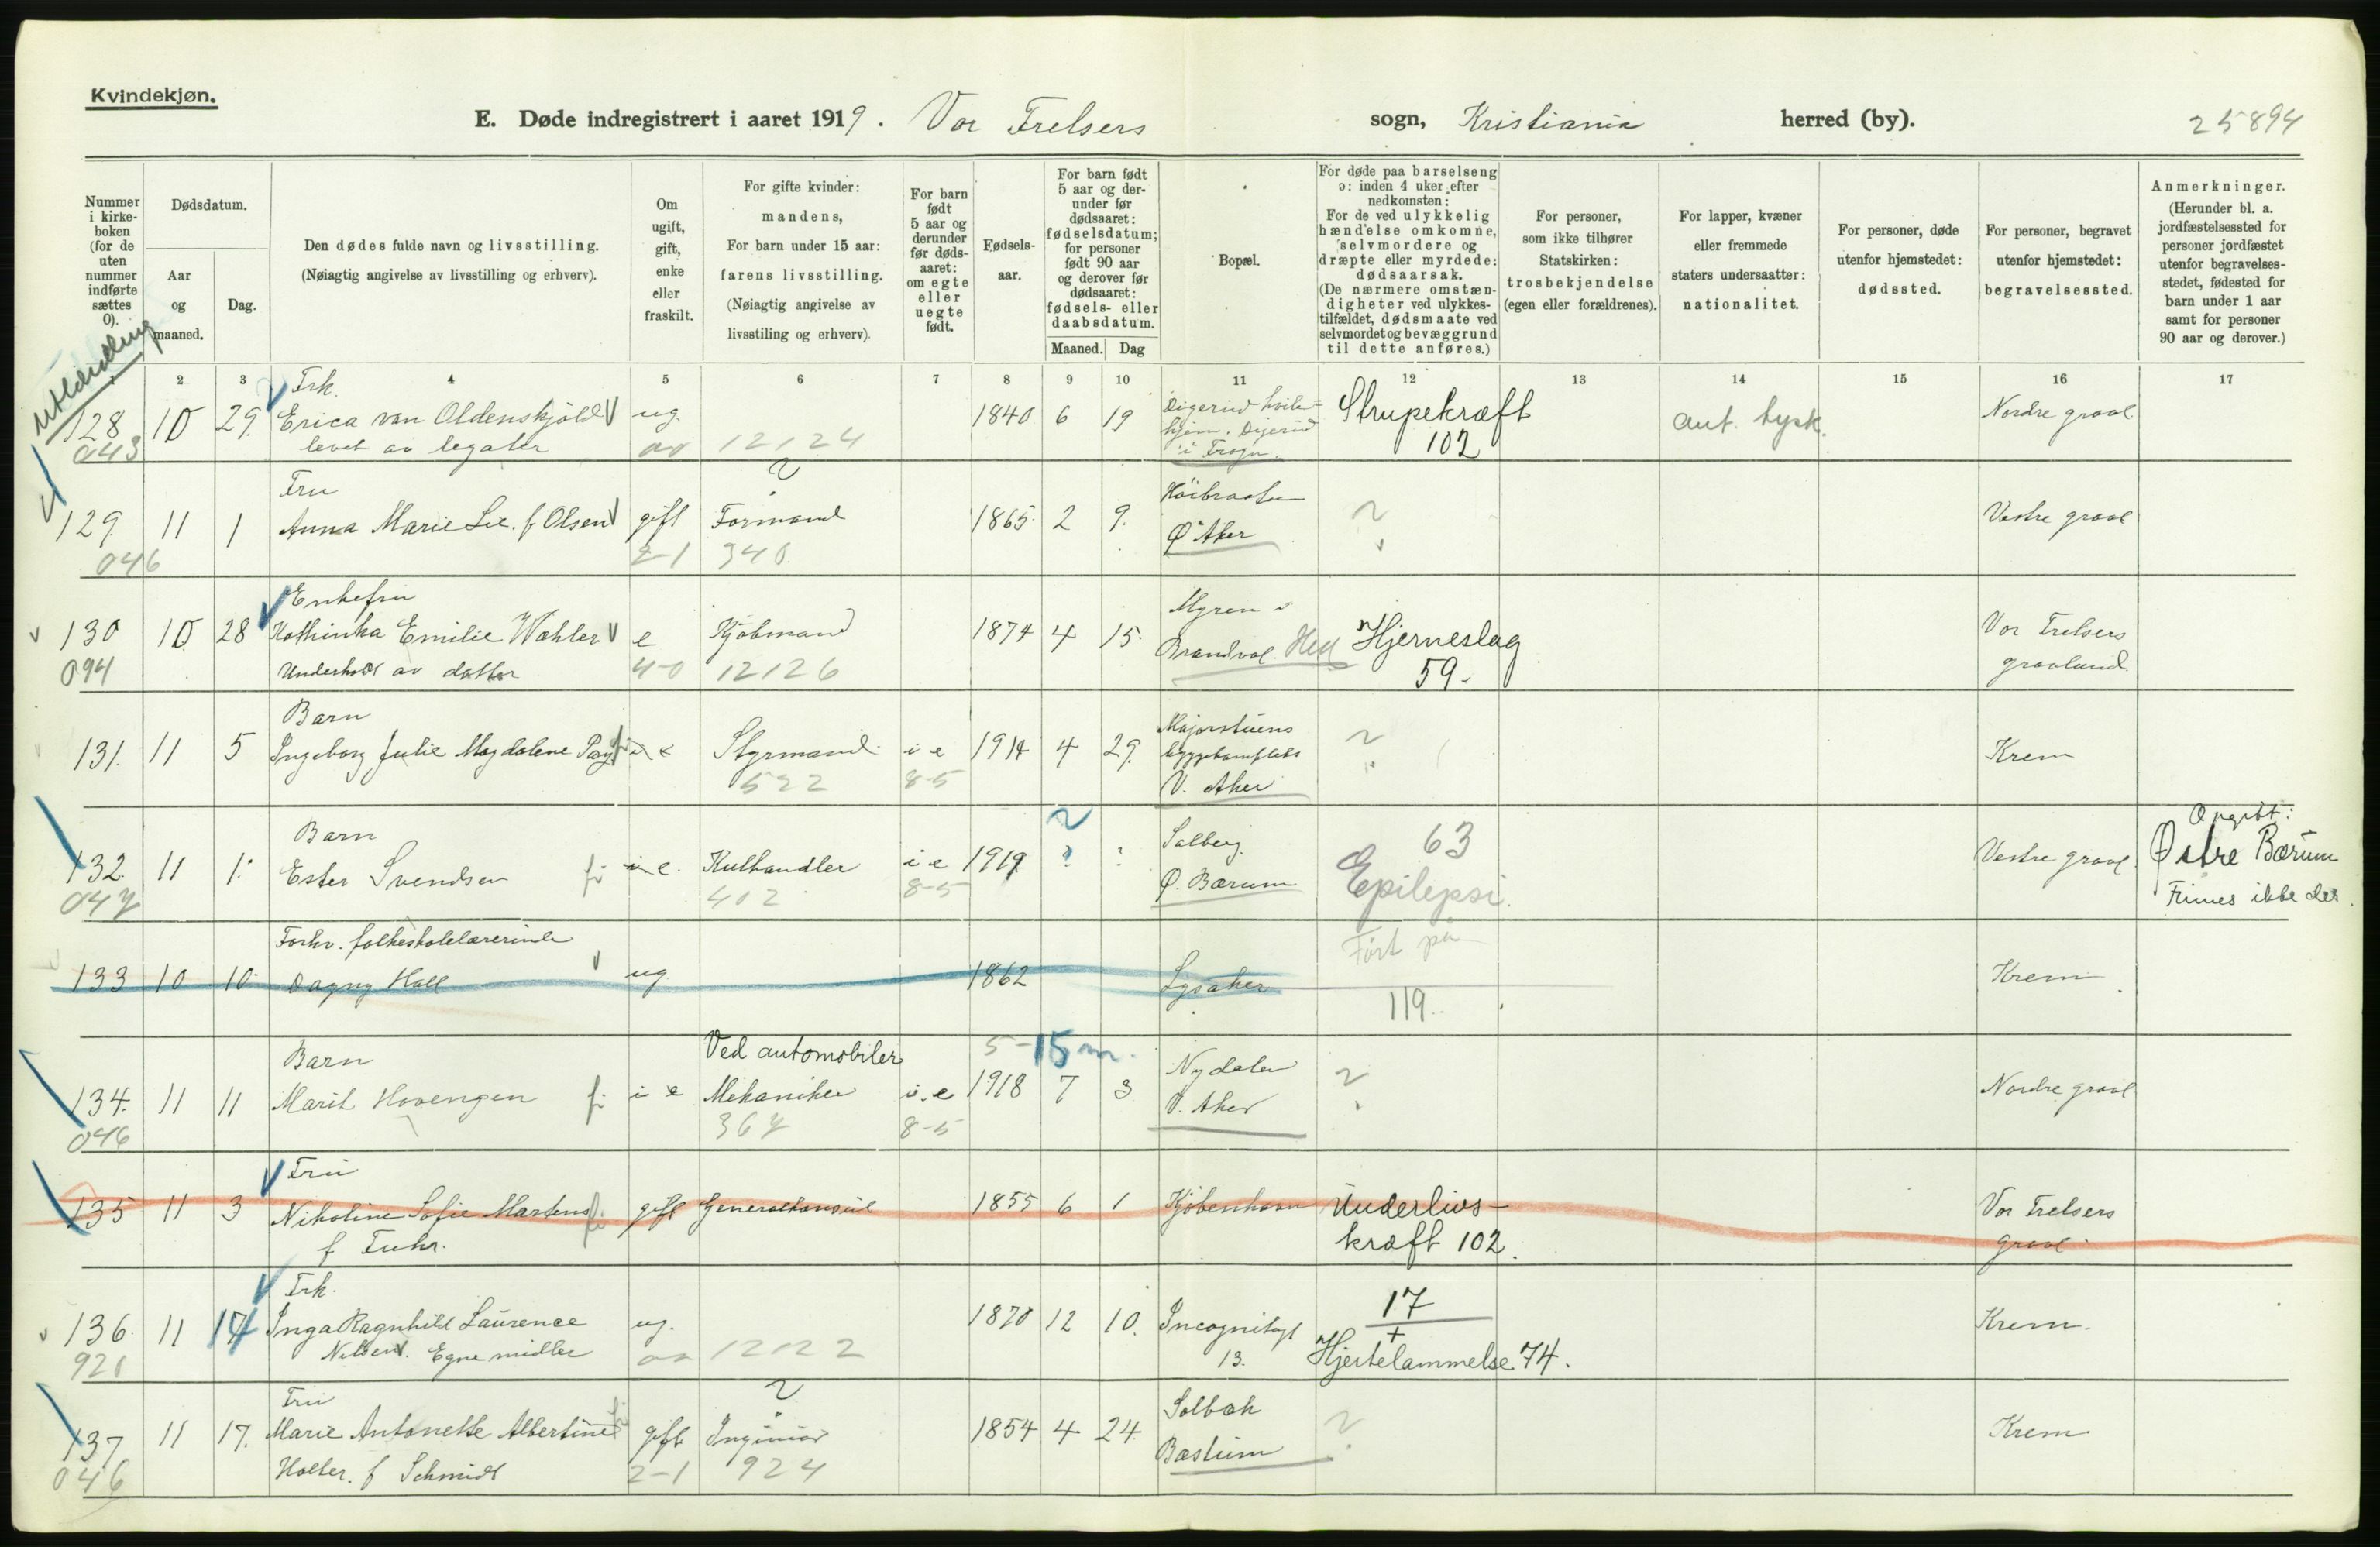 Kvindekjøn.
E. Døde indregistrert i aaret 1919. Vor Frelsers sogn, Kristiania herred (by). 25894
Nummer i kirkeboken (for de uten nummer indførte sættes 0).
Dødsdatum.
Aar og maaned.
Dag.
Den dødes fulde navn og livsstilling.
(Nøiagtig angivelse av livsstilling og erhverv).
Om ugift, gift, enke eller fraskilt.
For gifte kvinder: mandens,
For barn under 15 aar: farens livsstilling.
(Nøiagtig angivelse av livsstiling og erhverv).
For barn født 5 aar og derunder før dødsaaret: om egte eller uegte født.
Fødselsaar.
For barn født 5 aar og derunder før dødsaaret: fødselsdatum; for personer født 90 aar og derover før dødsaaret: fødsels- eller daabsdatum.
Maaned. Dag
Bopæl.
For døde paa barselseng ɔ: inden 4 uker efter nedkomsten:
For de ved ulykkelig hændelse omkomne, selvmordere og dræpte eller myrdede: dødsaarsak.
(De nærmere omstændigheter ved ulykkestilfældet, dødsmaate ved selvmordet og bevæggrund til dette anføres.)
For personer, som ikke tilhører Statskirken: trosbekjendelse (egen eller forældrenes).
For lapper, kvæner eller fremmede staters undersaatter: nationalitet.
For personer, døde utenfor hjemstedet: dødssted.
For personer, begravet utenfor hjemstedet: begravelsessted.
Anmerkninger.
(Herunder bl. a. jordfæstelsessted for personer jordfæstet utenfor begravelsesstedet, fødested for barn under 1 aar samt for personer 90 aar og derover.)
2 3 4 5 6 7 8 9 10 11 12 13 14 15 16 17
utlænding
Frk.
128 10 29. Erica van Oldenskjold ug. 1840 6 19 Digerud hvilehjem. Digerud i Frogn. Strupekræft 102 aut. tysk. Nordre gravl.
043 levet av legater 12124
Fru
129 11 1 Anna Marie Lie. f Olsen gift Formand 1865 2 9. Høibraaten Ø Aker ? Vestre gravl
046 2-1 340
Enkefru
130 10 28 Kathinka Emilie Wahler e Kjøbmand 1874 4 15. Myren i Brandval. Hed Hjerneslag 59. Vor Frelsers gravlund
094 Underholdt av datter 4-0 12126
Barn
131. 11 5 Ingeborg Julie Magdalene Styrmand i e 1914 4 29. Majorstuens byggekompleks V. Aker ? Krem
522 8-5
Barn
132. 11 1. Ester Svendsen fi Kulhandler i e 1919 ? ? Solberg. Ø. Bærum 63 Epilepsi. Vestre gravl. Opgitt: Østre Bærum Finnes ikke der.
047 402 8-5
Forhv. folkeskolelærerinde
133 10 10 Dagny Hall ug 1862 Lysaker Ført på 119. Krem
Barn Ved automobiler 5- 15 m.
134. 11 11 Marit Hovengen fi i e Mekaniker i. e 1918 7 3 Nydalen V. Aker ? Nordre gravl
046 367 8-5
Fru
135 11 3 Nikoline Sofie Martens gift Generalkonsul 1855 6 1 Kjøbenhavn Underlivskræft 102. Vor Frelsers gravl
f Fuhr.
Frk.
136 11 14 Inga Ragnhild Laurence Nilsen. Egne midler ug. 1870 12 10. Incognitogt 13. 17 + Hjertelammelse 74. Krem.
920 12122
Fru
137 11 17. Marie Antonette Albertine gift Ingeniør 1854 4 24 Solbak Bæstum ? Krem
046 Holter. f Schmidt 2-1 924